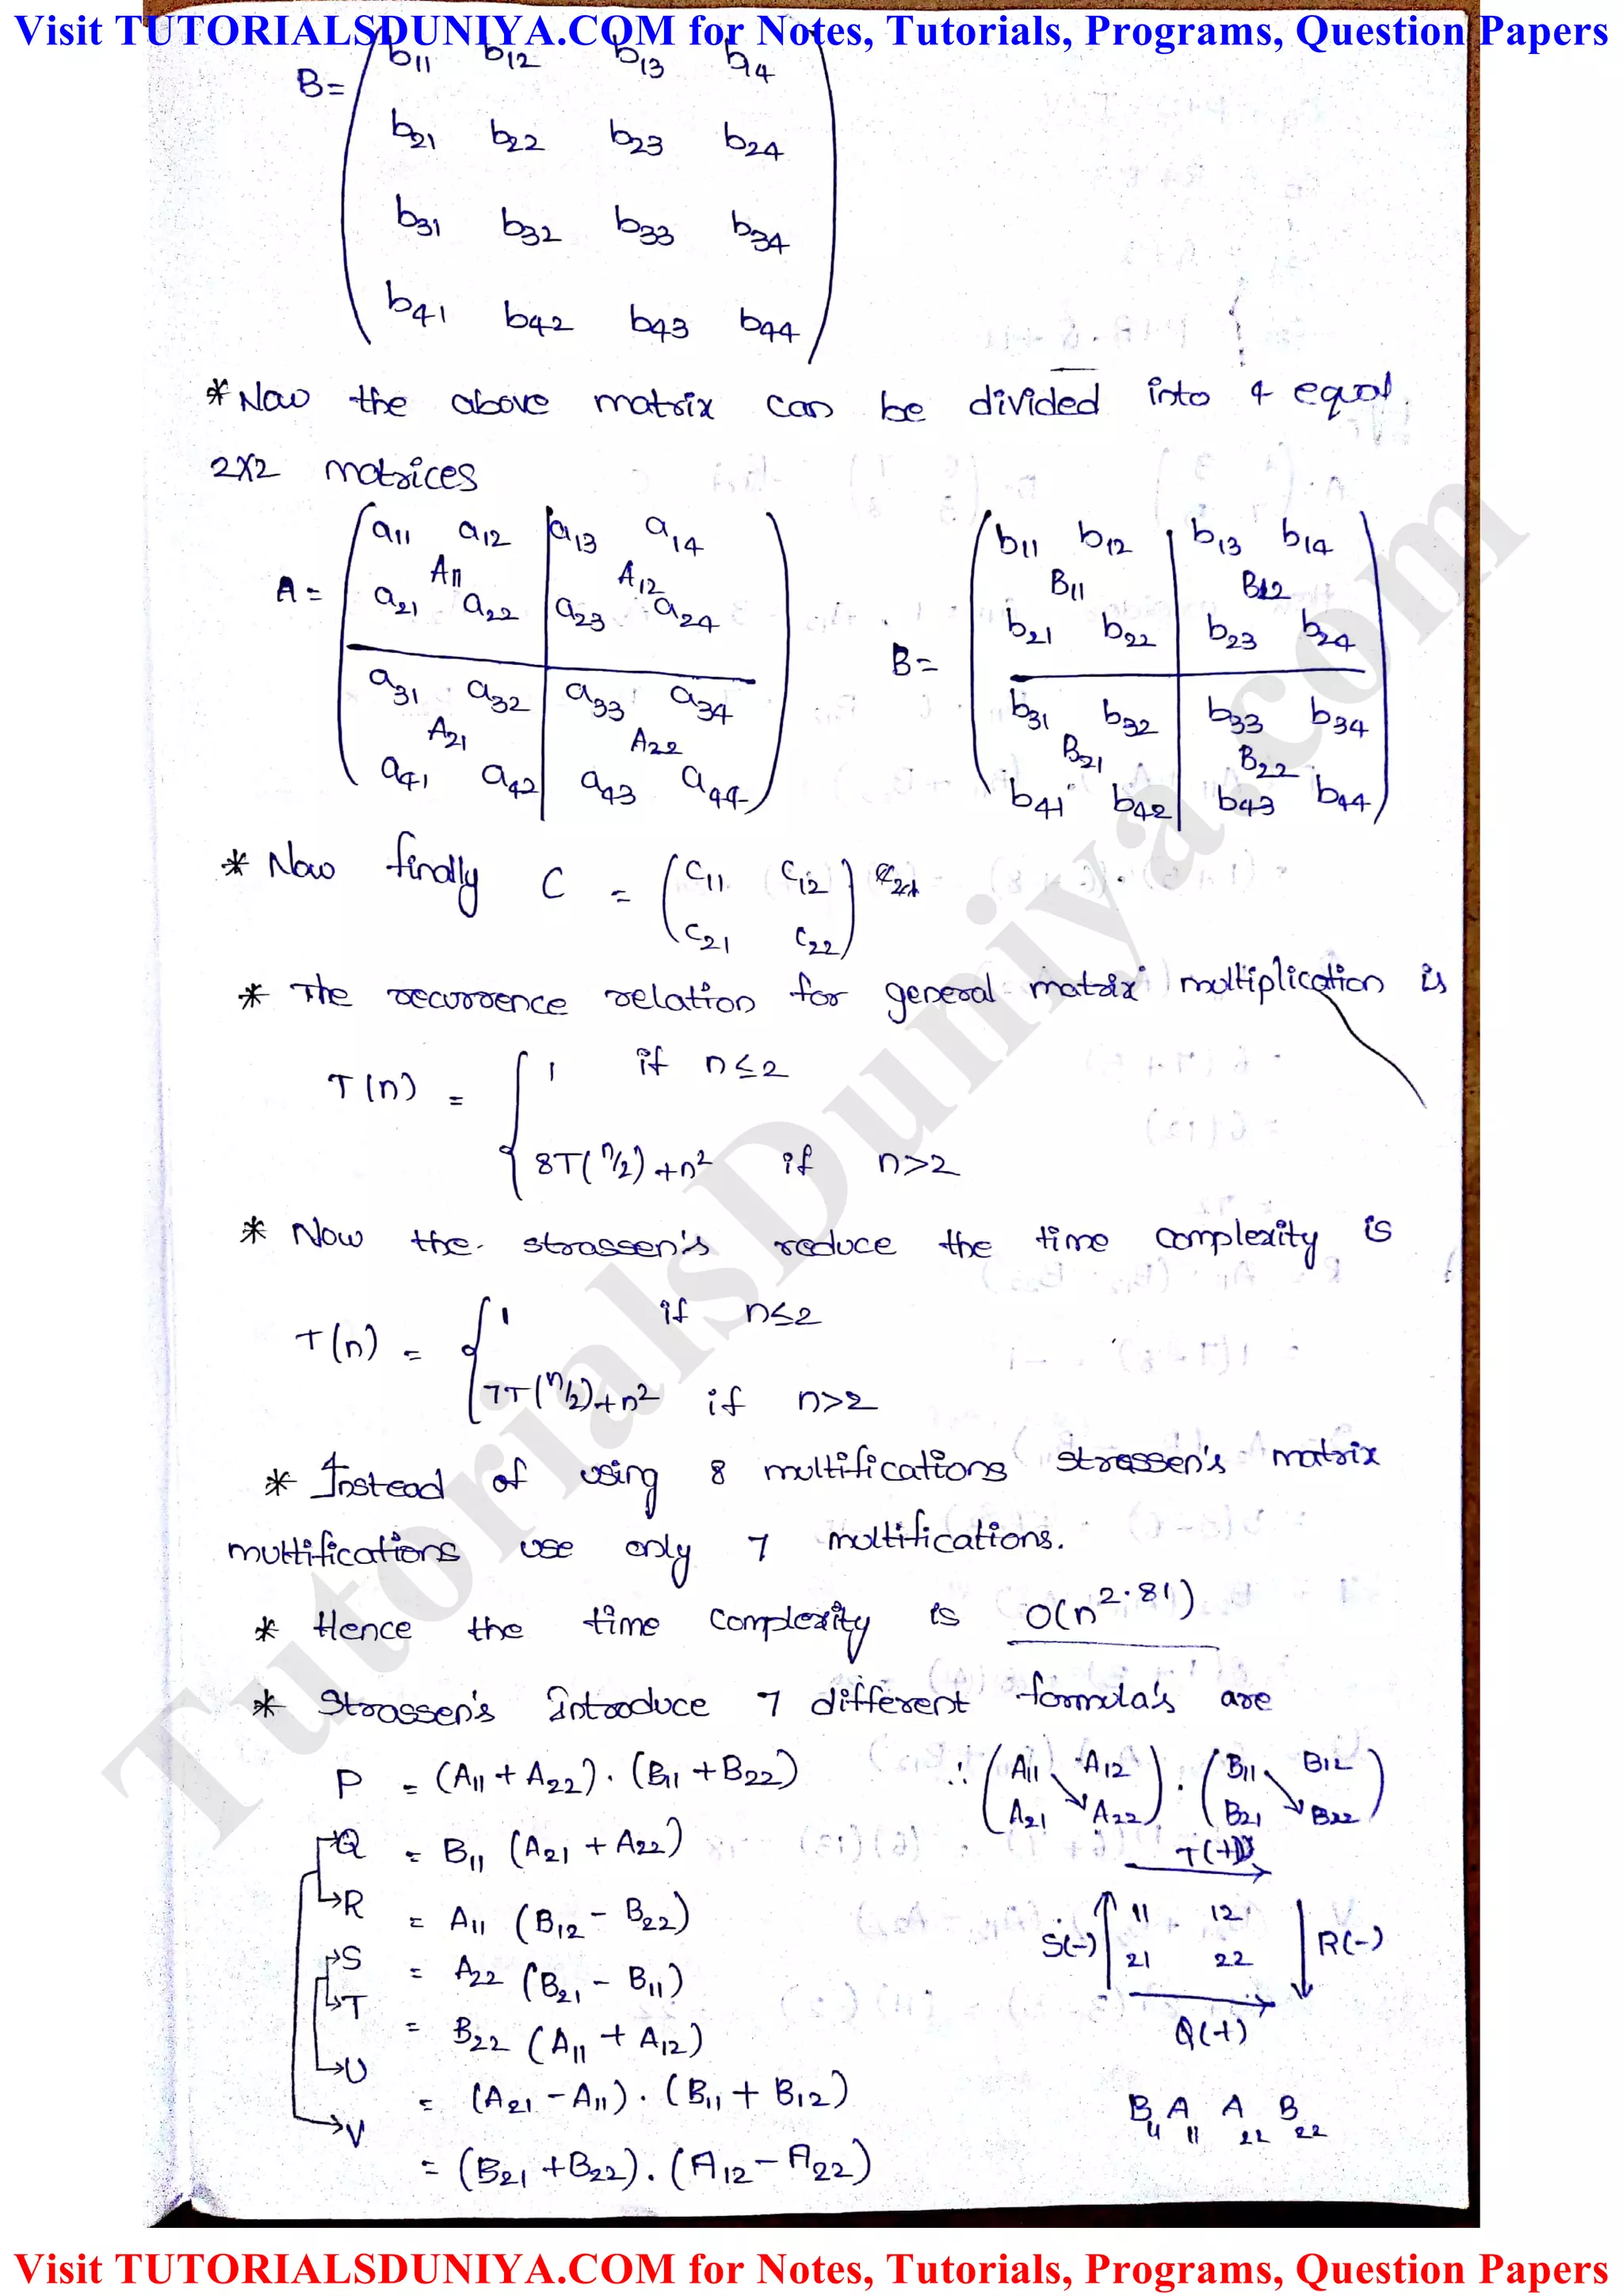 Visit TUTORIALSDUNIYA.COM for Notes, Tutorials, Programs, Question Papers
b11 b12 b13 b14
B=
b21 b22 b23 b24
b31 b32 b33 b34
b41 b42 b43 b44
* Now the above matrix can be divided into 4 equal
2x2 matrices
a11 a12 a13 a14
A11 A12
A =
a21 a22 a23 a24
a31 a32 a33 a34
A21 A22
a41 a42 a43 a44
b11 b12 b13 b14
B11 B12
b21 b22 b23 b24
B=
b31 b32 b33 b34
B21 B22
b41 b42 b43 b44
* Now finally C = (C11 C12)
C21 C22
* The recurrence relation for general matrix multiplication is
T(n) = { 1 if n≤2
8T(n/2)+n² if n>2
* Now the strassen's reduce the time complexity is
T(n) = { 1 if n≤2
7T(n/2)+n² if n>2
* Instead of using 8 multifications strassen's matrix
multifications use only 7 multifications.
* Hence the time complexity is O(n^2.81)
* Strassen's Introduce 7 different formula's are
P = (A11 + A22) . (B11 + B22)
∴ (A11 A12) . (B11 B12)
A21 A22 B21 B22
Q = B11 (A21 + A22)
R = A11 (B12 - B22)
S = A22 (B21 - B11)
T = B22 (A11 + A12)
U = (A21 - A11) . (B11 + B12)
V = (B21 + B22) . (A12 - A22)
T(+)
S(-) 11 12 R(-)
21 22
Q(+)
B11 A11 A22 B22
TutorialsDuniya.com
Visit TUTORIALSDUNIYA.COM for Notes, Tutorials, Programs, Question Papers